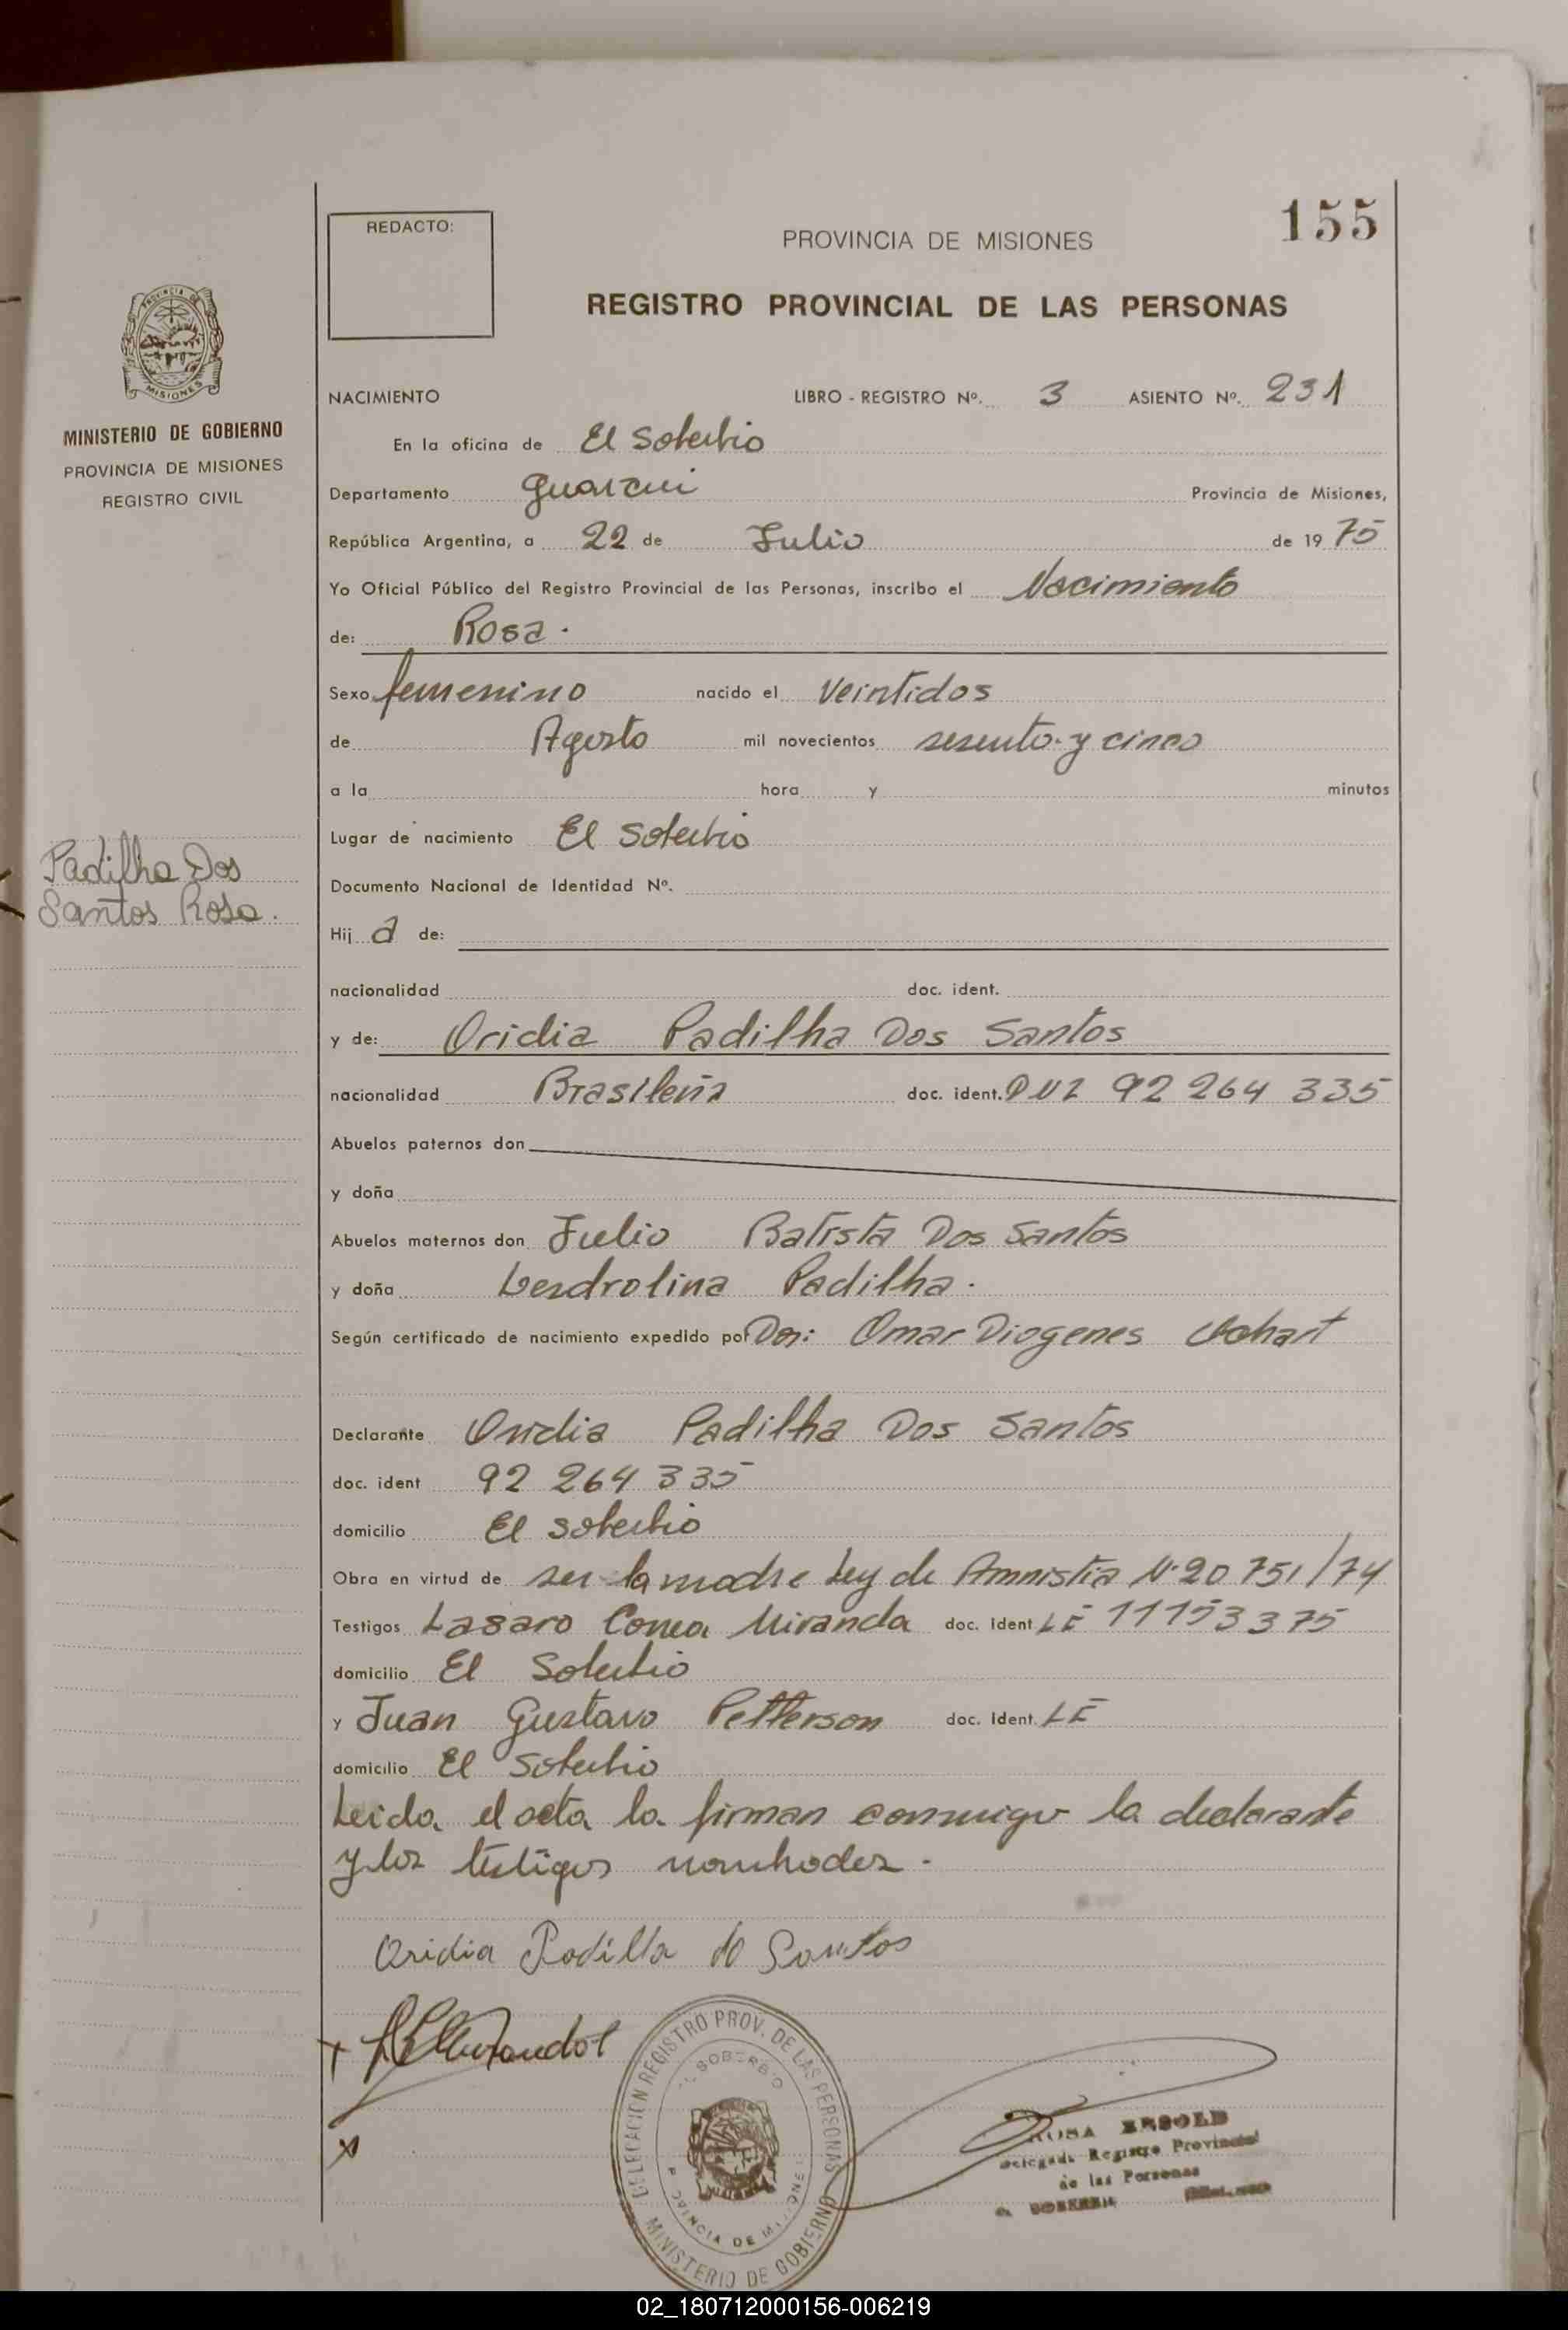 155
REDACTO:
PROVINCIA DE MISIONES
REGISTRO PROVINCIAL DE LAS PERSONAS
MISIONES
MINISTERIO DE GOBIERNO
PROVINCIA DE MISIONES
REGISTRO CIVIL
NACIMIENTO LIBRO - REGISTRO Nº. 3 ASIENTO Nº. 231
En la oficina de El Soberbio
Departamento Guarani Provincia de Misiones,
República Argentina, a 22 de Julio de 19 75
Yo Oficial Público del Registro Provincial de las Personas, inscribo el Nacimiento
de: Rosa.
Sexo femenino nacido el veintidos
de Agosto mil novecientos sesenta y cinco
a la hora y minutos
Lugar de nacimiento El Soberbio
Padilha Dos
Santos Rosa.
Documento Nacional de Identidad Nº.
Hij a de:
nacionalidad doc. ident.
y de: Oridia Padilha Dos Santos
nacionalidad Brasileña doc. ident. DNI 92 264 335
Abuelos paternos don
y doña
Abuelos maternos don Julio Batista Dos Santos
y doña Lendrolina Padilha.
Según certificado de nacimiento expedido por Don: Omar Diogenes
Declarante Oridia Padilha Dos Santos
doc. ident 92 264 335
domicilio El Soberbio
Obra en virtud de ser la madre Ley de Amnistia Nº 20 751/74
Testigos Lasaro Correa Miranda doc. ident LE 11153375
domicilio El Soberbio
y Juan Gustavo Petterson doc. Ident. LE
domicilio El Soberbio
Leida el acta la firman conmigo la declarante
y los testigos nombrados.
Oridia Padilla do Santos
DELEGACION REGISTRO PROV. DE LAS PERSONAS
EL SOBERBIO
PROVINCIA DE MISIONES
MINISTERIO DE GOBIERNO
ROSA
Delegada Registro Provincial
de las Personas
SOBERBIO
02_180712000156-006219